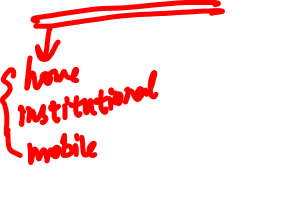 home
institutional
mobile